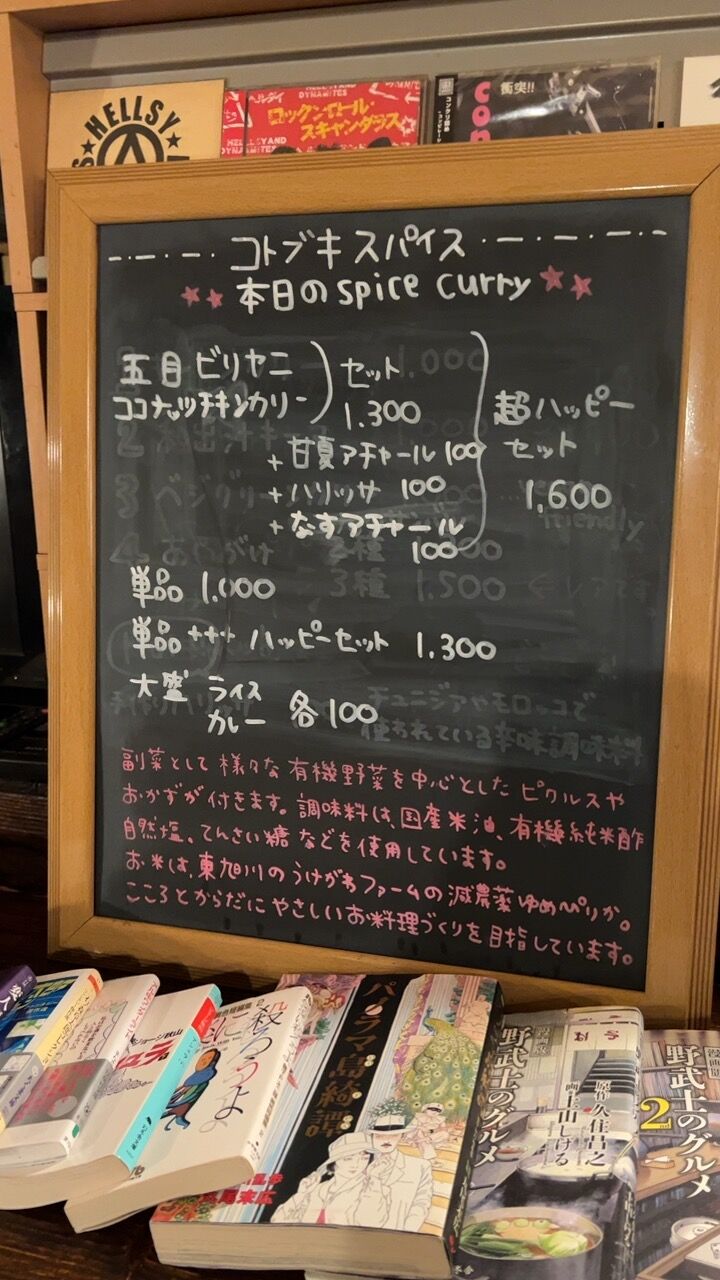 HELLSY
HELLSY AND DYNAMITES
ロックンロール・
スキャンダラス
衝突!!
コトブキスパイス
本日の spice curry
五目 ビリヤニ
ココナッツチキンカリー
セット
1.300
+甘夏アチャール 100
+ハリッサ 100
+なすアチャール
100
超ハッピー
セット
1,600
単品 1.000
単品 +++ ハッピーセット 1.300
大盛 ライス
カレー 各100
チュニジアやモロッコで
使われている辛味調味料
副菜として様々な有機野菜を中心としたピクルスや
おかずが付きます。調味料は、国産米油、有機純米酢
自然塩、てんさい糖などを使用しています。
お米は、東旭川のうけがわファームの減農薬ゆめぴりか。
こころとからだにやさしいお料理づくりを目指しています。
殺ろうよ
パノラマ島綺譚
尾末広
漫画版
野武士のグルメ
原作 久住昌之
画 土山しげる
野武士のグルメ
2